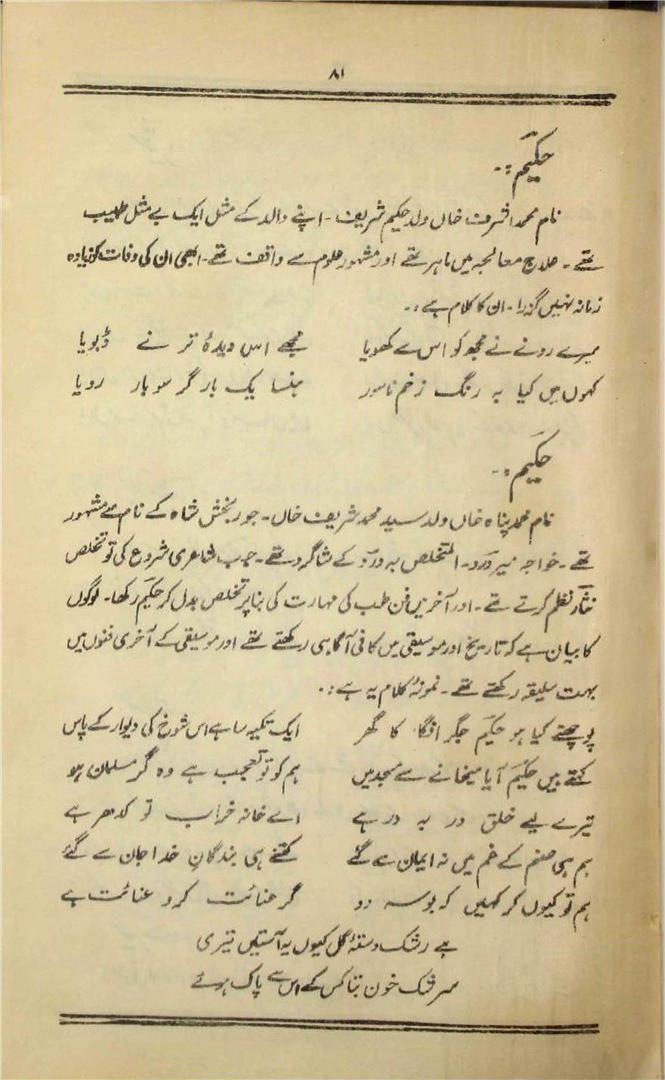 ۸۱
حکیم :۔
نام محمد اشرف خاں ولد حکیم شریف ۔ اپنے والد کے مثل ایک بے مثل طبیب
تھے ۔ علاج معالجہ میں ماہر تھے اور مشہور علوم سے واقف تھے ۔ ابھی ان کی وفات کو زیادہ
زمانہ نہیں گزرا ۔ ان کا کلام ہے :۔
میرے رونے نے مجھ کو اس سے کھویا مجھے اس دیدۂ تر نے ڈبویا
کہوں میں کیا بہ رنگ زخم ناسور ہنسا یک بار گر سو بار رویا
حکیم :۔
نام محمد پناہ خاں ولد سید محمد شریف خاں ۔ جو ربخش شاہ کے نام سے مشہور
تھے ۔ خواجہ میر درد ۔ المتخلص بہ درد کے شاگرد تھے ۔ جب شاعری شروع کی تو تخلص
نثار نظم کرتے تھے ۔ اور آخر میں فن طب کی مہارت کی بنا پر تخلص بدل کر حکیم رکھا ۔ لوگوں
کا بیان ہے کہ تاریخ اور موسیقی میں کافی آگاہی رکھتے تھے اور موسیقی کے آخری فنوں میں
بہت سلیقہ رکھتے تھے ۔ نمونۂ کلام یہ ہے :۔
پوچھتے کیا ہو حکیم جگر افگار کا گھر ایک تکیہ سا ہے اس شوخ کی دیوار کے پاس
کہتے ہیں حکیم آیا میخانے سے مسجد میں ہم کو تو تعجب ہے وہ گر مسلمان ہو
تیرے لیے خلق در بہ در ہے اے خانہ خراب تو کدھر ہے
ہم ہی صنم کے غم میں نہ ایمان سے گئے کتنے ہی بندگانِ خدا جان سے گئے
ہم تو کیوں کر کہیں کہ بوسہ دو گر عنائت کرو عنائت ہے
ہے رشک دستۂ گل کیوں یہ آستیں تیری
سرشک خون بتا کس کے اس سے پاک ہوئے